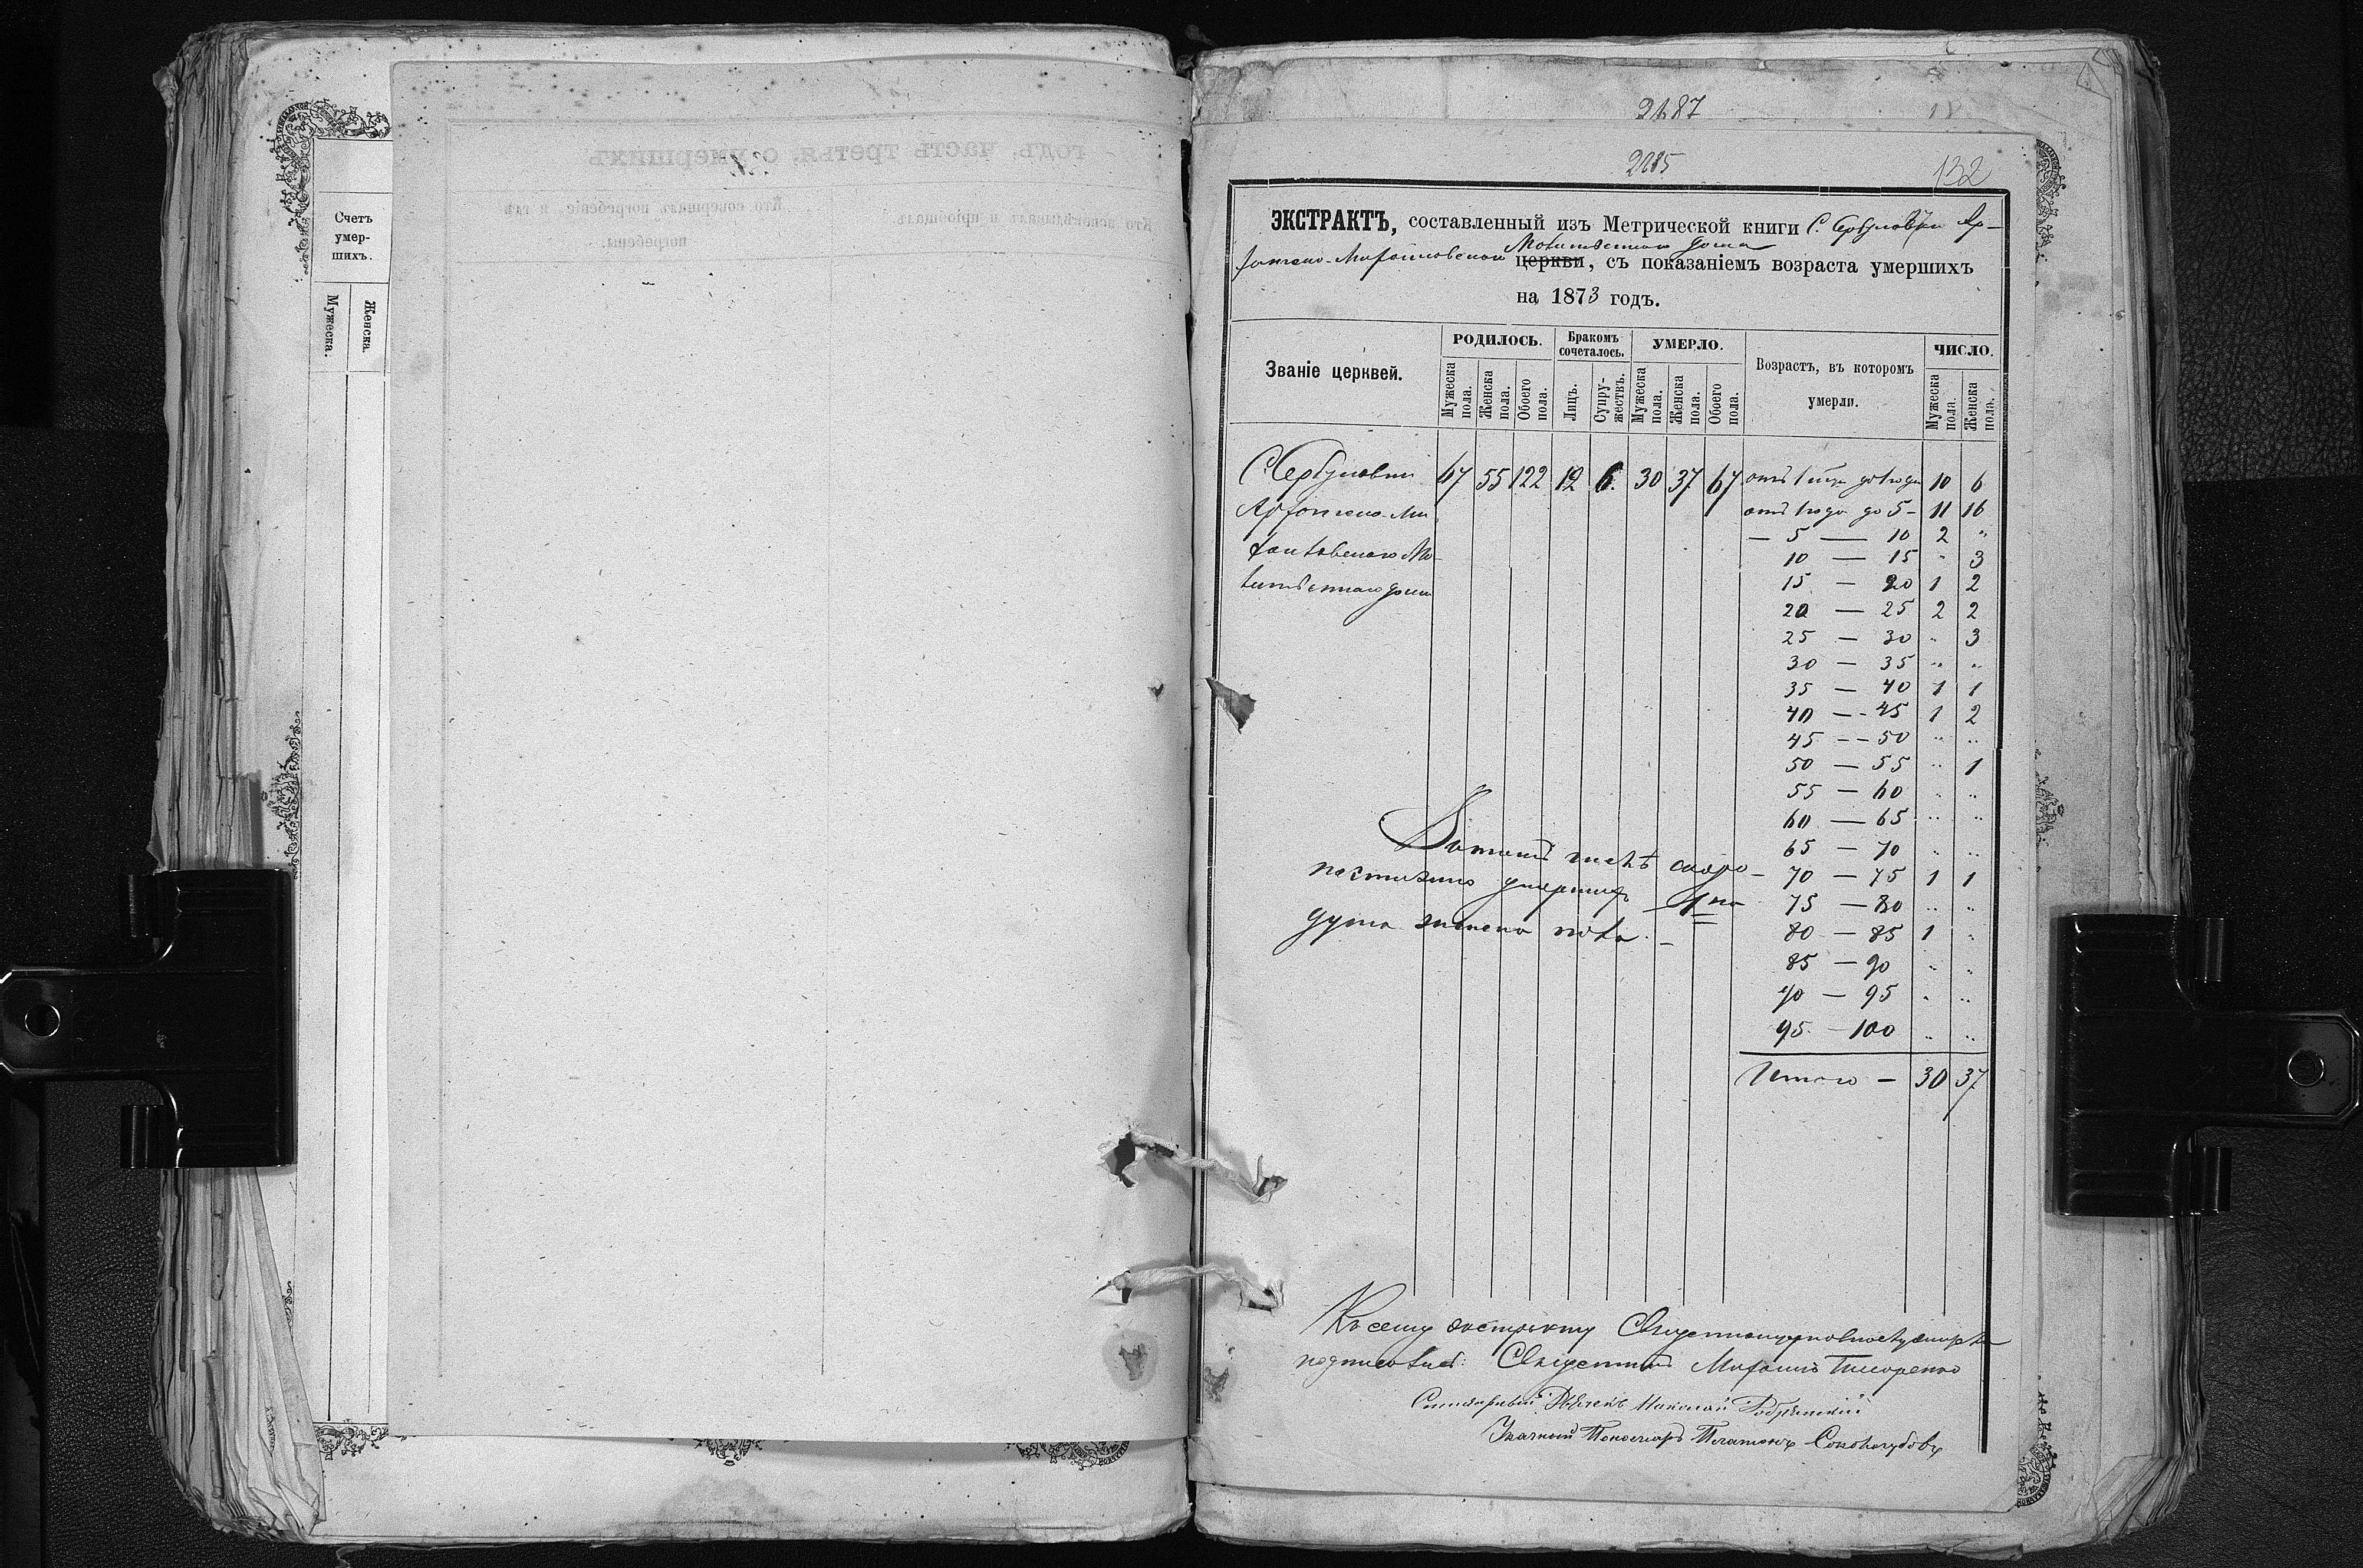 Счетъ
умер-
шихъ.
Мужеска.
Женска.
годъ, часть третья, о умершихъ
Кто исповѣдывалъ и пріобщалъ.
Кто совершалъ погребеніе, и гдѣ
погребены.
2187
2085
132
ЭКСТРАКТЪ, составленный изъ Метрической книги С.
Молитвеннаго дома
церкви, съ показаніемъ возраста умершихъ
на 1873 годъ.
Званіе церквей.
РОДИЛОСЬ.
Мужеска пола.
Женска пола.
Обоего пола.
Бракомъ сочеталось.
Лицъ.
Супру-жествъ.
УМЕРЛО.
Мужеска пола.
Женска пола.
Обоего пола.
Возрастъ, въ которомъ
умерли.
ЧИСЛО.
Мужеска пола.
Женска пола.
С. 67 55 122 12 6. 30 37 67 отъ до года 10 6
отъ 1 года до 5 - 11 16
— 5 — 10 2 "
10 — 15 " 3
Молитвеннаго дома 15 — 20 1 2
20 — 25 2 2
25 — 30 " 3
30 — 35 " "
35 — 40 1 1
40 — 45 1 2
45 — 50 " "
50 — 55 " 1
55 — 60 " "
60 — 65 " "
65 — 70 " "
70 — 75 1 1
75 — 80 " "
80 — 85 1 "
85 — 90 " "
90 — 95 " "
95 — 100 " "
Итого — 30 37
Въ томъ числѣ скоро-
постижно умершихъ 1 на
душа женска пола. —
Къ сему экстракту
подписались: Священникъ Михаилъ Тиморенко
Николай
Указный Пономарь Платонъ